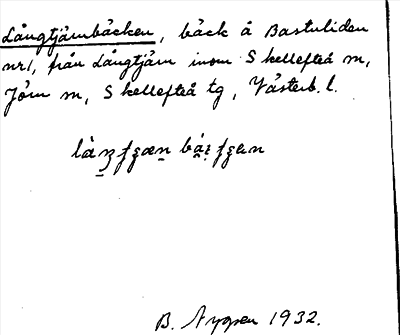 Långtjärnbäcken, bäck å Bastuliden
nr1, från Långtjärn inom Skellefteå m,
Jörn m, Skellefteå tg, Västerb. l.
B. Nygren 1932.